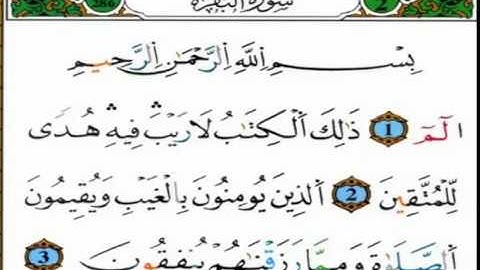 286 سورة البقرة 2
بِسْمِ ٱللَّهِ ٱلرَّحْمَٰنِ ٱلرَّحِيمِ
الٓمٓ 1 ذَٰلِكَ ٱلْكِتَٰبُ لَا رَيْبَ ۛ فِيهِ ۛ هُدًى
لِّلْمُتَّقِينَ 2 ٱلَّذِينَ يُؤْمِنُونَ بِٱلْغَيْبِ وَيُقِيمُونَ
ٱلصَّلَوٰةَ وَمِمَّا رَزَقْنَٰهُمْ يُنفِقُونَ 3